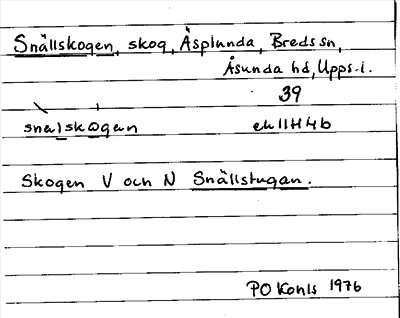 Snällskogen, skog, Åsplunda, Breds sn,
Åsunda hd, Upps. l.
39
snelskogan ek 11H4b
Skogen V och N Snällstugan.
PO Konls 1976